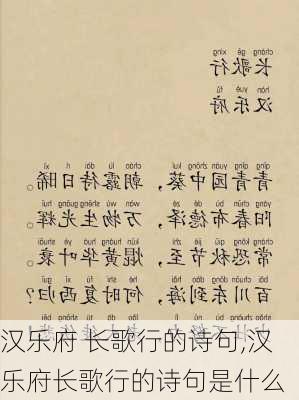 cháng gē xíng
长歌行
hàn yuè fǔ
汉乐府
qīng qīng yuán zhōng kuí zhāo lù dài rì xī
青青园中葵，朝露待日晞。
yáng chūn bù dé zé wàn wù shēng guāng huī
阳春布德泽，万物生光辉。
cháng kǒng qiū jié zhì kūn huáng huā yè shuāi
常恐秋节至，焜黄华叶衰。
bǎi chuān dōng dào hǎi hé shí fù xī guī
百川东到海，何时复西归？
汉乐府 长歌行的诗句,汉
乐府长歌行的诗句是什么